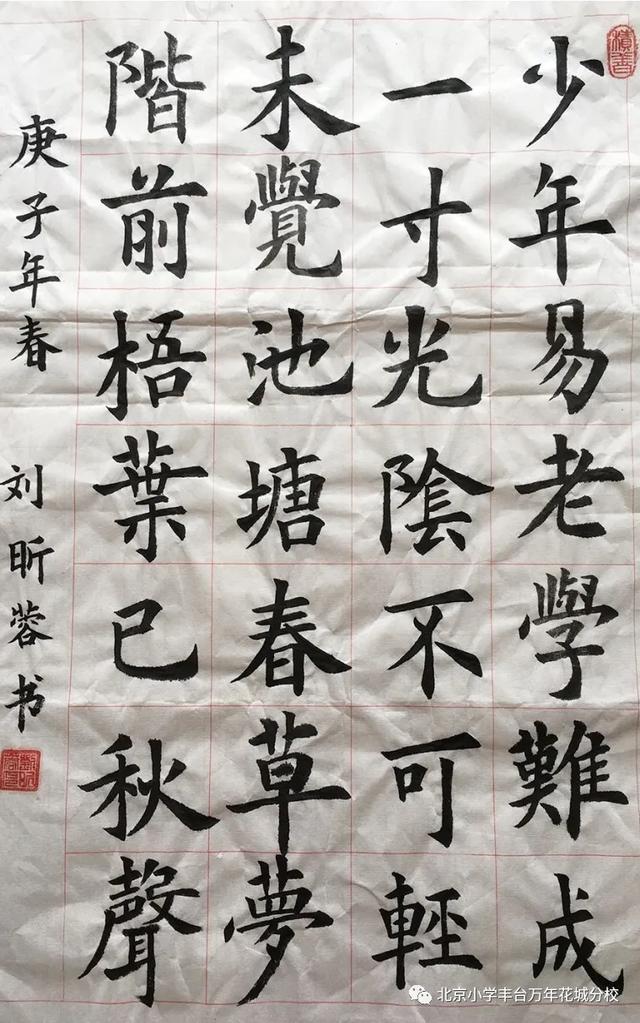 少年易老學難成
一寸光陰不可輕
未覺池塘春草夢
階前梧葉已秋聲
庚子年春 刘昕蓉书
積善
北京小学丰台万年花城分校